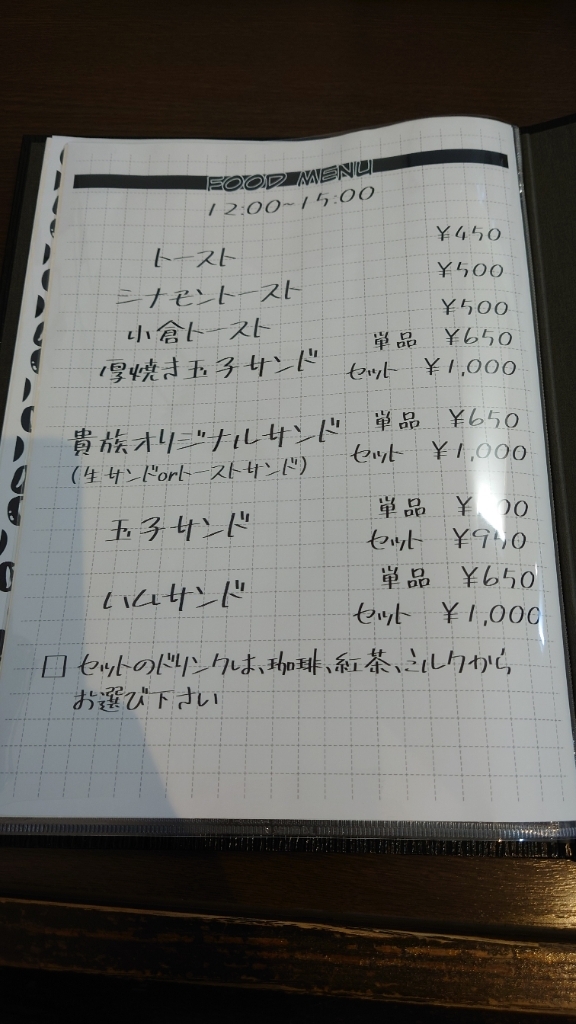 FOOD MENU
12:00~15:00
トースト ¥450
シナモントースト ¥500
小倉トースト ¥500
厚焼き玉子サンド 単品 ¥650
セット ¥1,000
貴族オリジナルサンド 単品 ¥650
(生サンドorトーストサンド) セット ¥1,000
玉子サンド 単品
セット ¥950
ハムサンド 単品 ¥650
セット ¥1,000
□ セットのドリンクは、珈琲、紅茶、ミルクから
お選び下さい